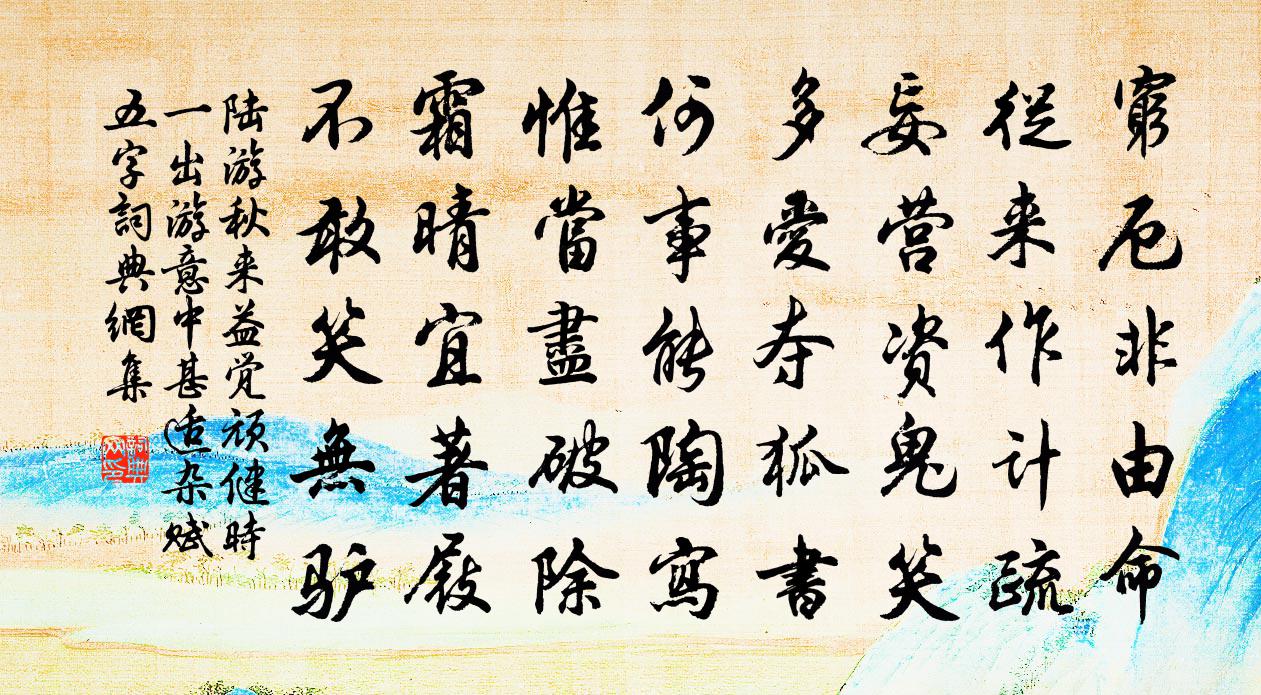 窮厄非由命
從来作计疏
妄营资鬼笑
多愛夺狐書
何事能陶寫
惟當盡破除
霜晴宜著屐
不敢笑無驴
陆游秋来益觉顽健時
一出游意中甚适杂赋
五字詞典網集